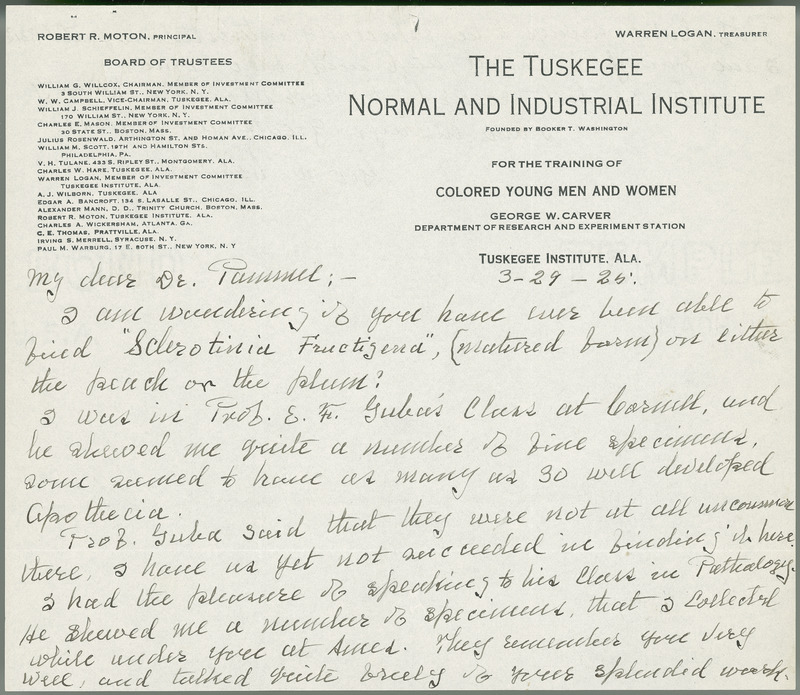 ROBERT R. MOTON, PRINCIPAL
WARREN LOGAN, TREASURER
BOARD OF TRUSTEES
WILLIAM G. WILLCOX, CHAIRMAN, MEMBER OF INVESTMENT COMMITTEE
3 SOUTH WILLIAM ST., NEW YORK, N. Y.
W. W. CAMPBELL, VICE-CHAIRMAN, TUSKEGEE, ALA.
WILLIAM J. SCHIEFFELIN, MEMBER OF INVESTMENT COMMITTEE
170 WILLIAM ST., NEW YORK, N. Y.
CHARLES E. MASON, MEMBER OF INVESTMENT COMMITTEE
30 STATE ST., BOSTON, MASS.
JULIUS ROSENWALD, ARTHINGTON ST. AND HOMAN AVE., CHICAGO, ILL.
WILLIAM M. SCOTT, 19TH AND HAMILTON STS.
PHILADELPHIA, PA.
V. H. TULANE, 433 S. RIPLEY ST., MONTGOMERY, ALA.
CHARLES W. HARE, TUSKEGEE, ALA.
WARREN LOGAN, MEMBER OF INVESTMENT COMMITTEE
TUSKEGEE INSTITUTE, ALA.
A. J. WILBORN, TUSKEGEE, ALA
EDGAR A. BANCROFT, 134 S. LASALLE ST., CHICAGO, ILL.
ALEXANDER MANN, D. D., TRINITY CHURCH, BOSTON, MASS.
ROBERT R. MOTON, TUSKEGEE INSTITUTE, ALA.
CHARLES A. WICKERSHAM, ATLANTA, GA.
C. E. THOMAS, PRATTVILLE, ALA.
IRVING S. MERRELL, SYRACUSE, N. Y.
PAUL M. WARBURG, 17 E. 80TH ST., NEW YORK, N. Y
THE TUSKEGEE
NORMAL AND INDUSTRIAL INSTITUTE
FOUNDED BY BOOKER T. WASHINGTON
FOR THE TRAINING OF
COLORED YOUNG MEN AND WOMEN
GEORGE W. CARVER
DEPARTMENT OF RESEARCH AND EXPERIMENT STATION
TUSKEGEE INSTITUTE, ALA.
3-29-25.
My dear Dr. Pammel;—
I am wondering if you have ever been able to
find "Sclerotinia Fructigena", (matured form) on either
the peach or the plum?
I was in Prof. E. F. Guba's Class at Cornell, and
he shewed me quite a number of fine specimens,
some seemed to have as many as 30 well developed
apothecia.
Prof. Guba said that they were not at all uncommon
there, I have as yet not succeeded in finding it here.
I had the pleasure of speaking to his Class in Pathology.
He shewed me a number of specimens, that I collected
while under you at Ames. They remember you very
well, and talked quite freely of your splendid work.